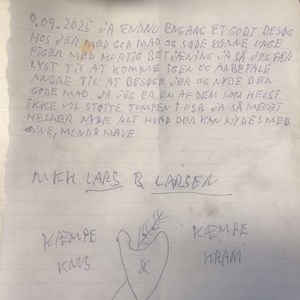 0.09.2025 JA ENDNU ENGANG ET GODT BESØG
HOS JER MED GOD MAD OG SØDE KØNNE UNGE
PIGER MED HURTIG BETJENING JA SÅ JEG FÅR
LYST TIL AT KOMME IGEN OG ANBEFALE
ANDRE TIL AT BESØGE JER OG NYDE DEN
GODE MAD. JA JEG ER EN AF DEM SOM HELST
IKKE VIL STØTTE TUMPEN I USA JA SÅ MEGET
HELLER NYDE ALT HVAD DER KAN NYDES MED
MUND & MAVE
MKH LARS B LARSEN
KÆMPE
KNUS
&
KÆMPE
KRAM